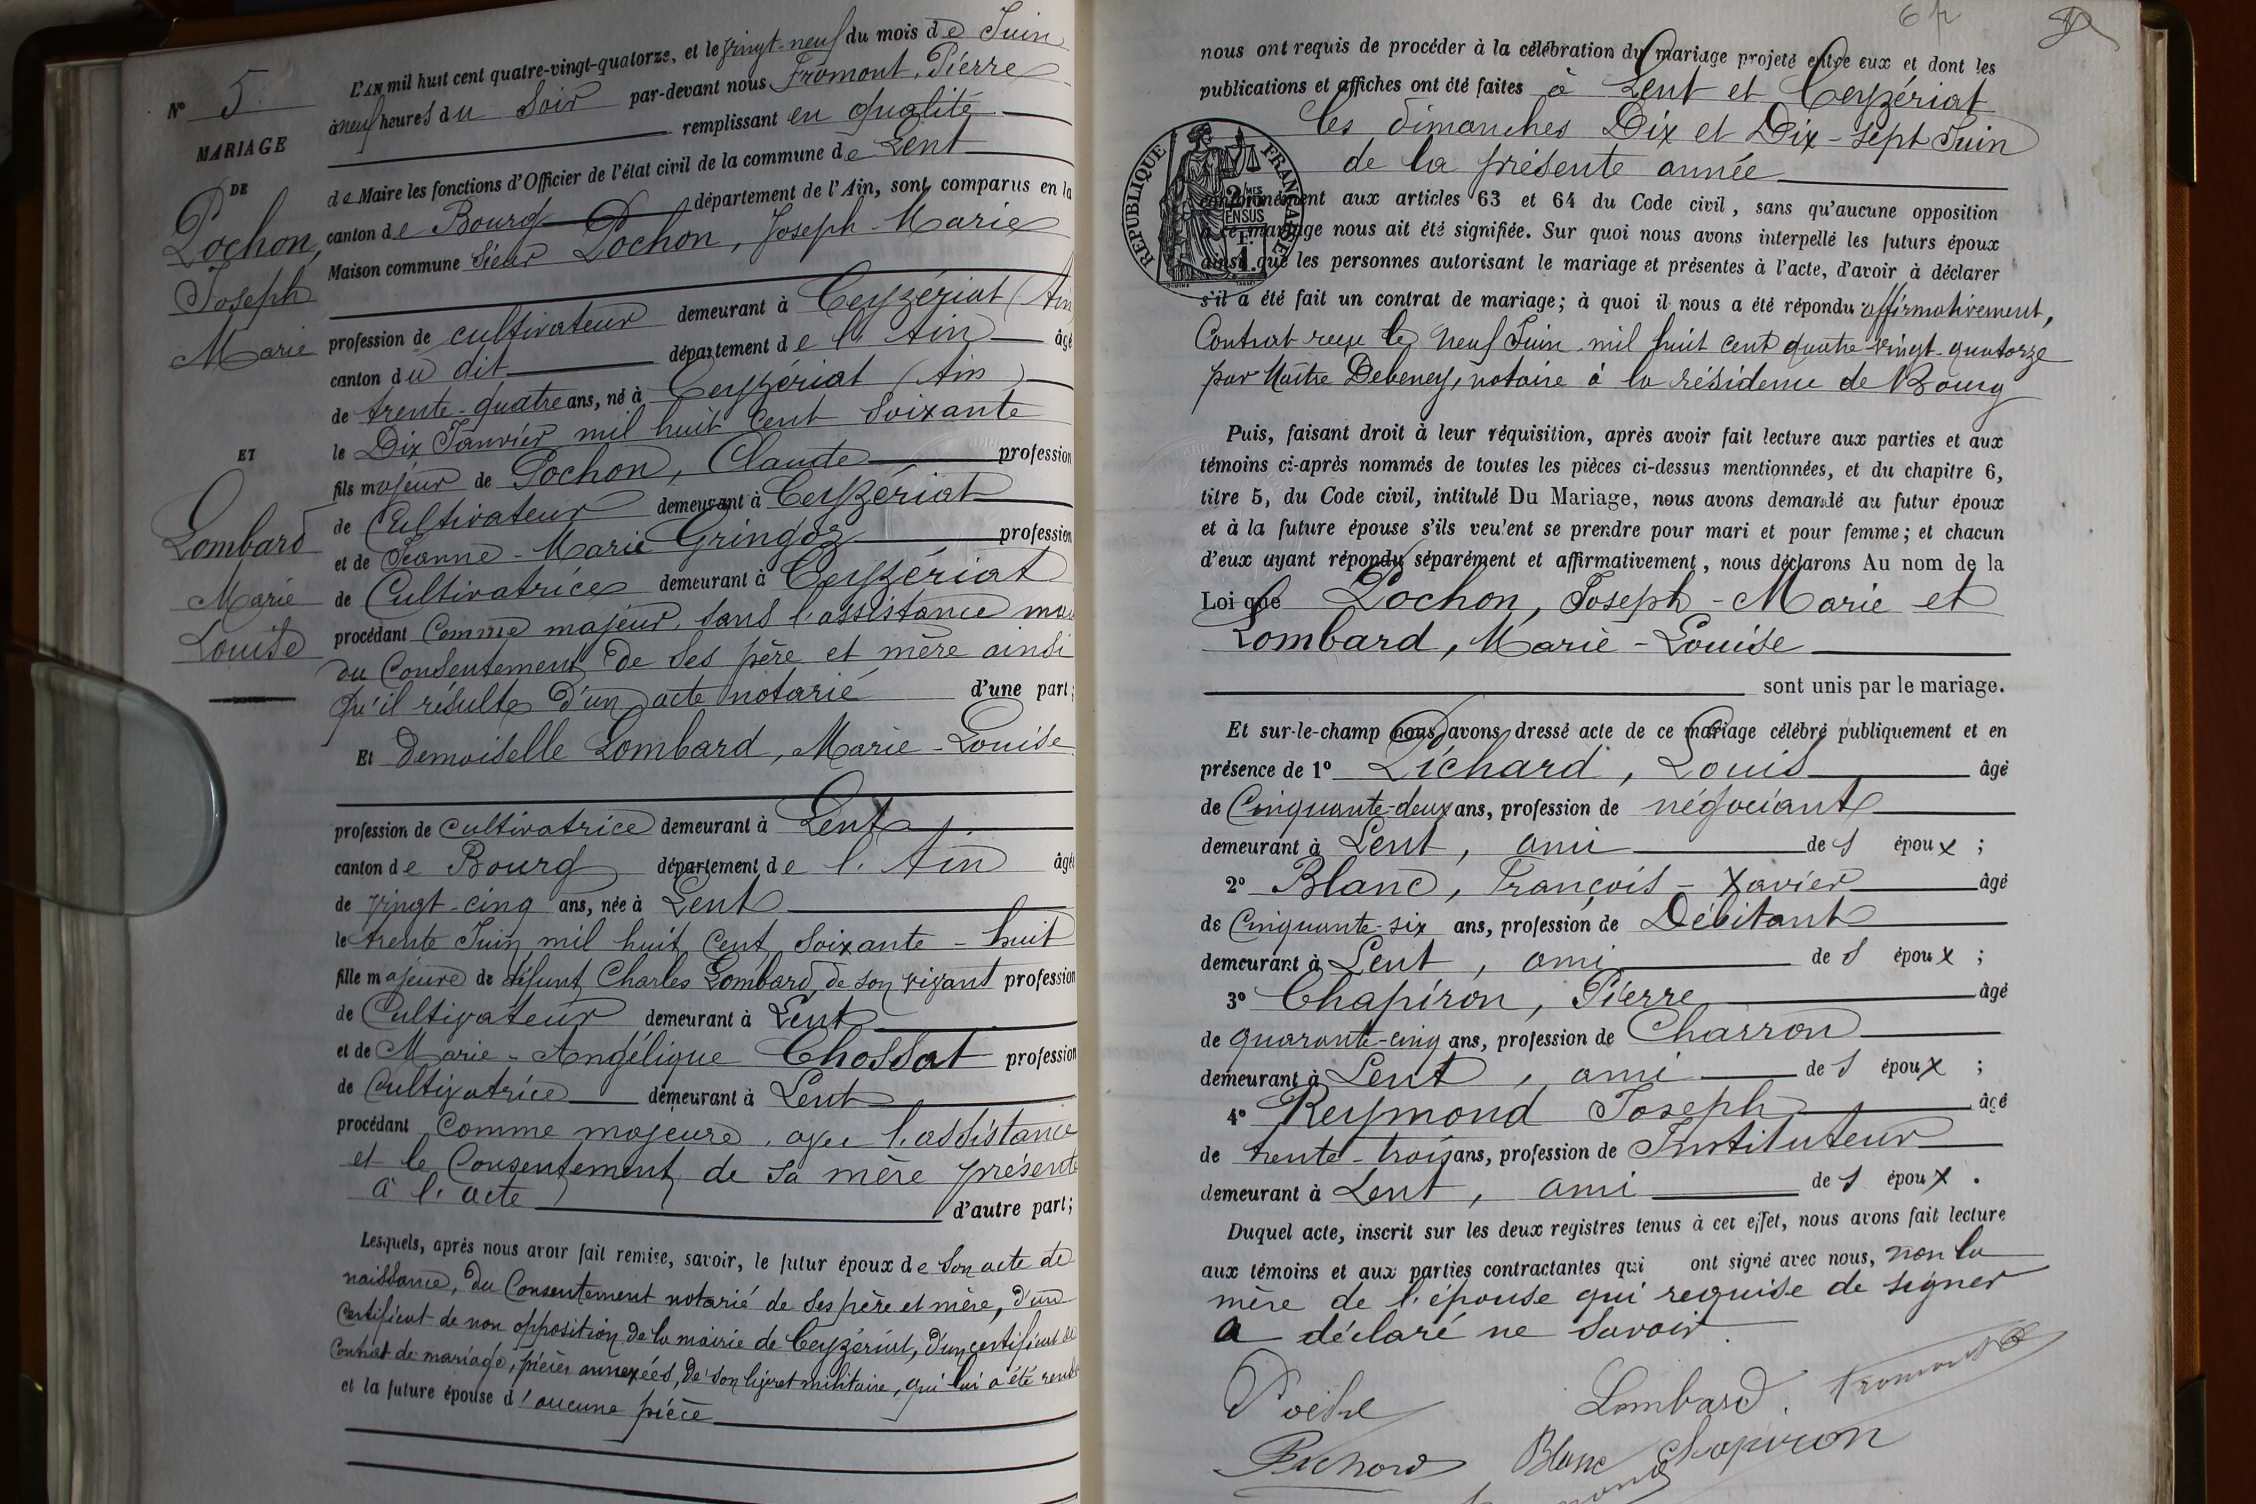 N° 5
MARIAGE
DE
Pochon,
Joseph
Marie
ET
Lombard
Marie
Louise
L'AN mil huit cent quatre-vingt-quatorze, et le vingt-neuf du mois de Juin
à neuf heures du Soir par-devant nous Fromont, Pierre
remplissant en qualité
de Maire les fonctions d'Officier de l'état civil de la commune de Lent
canton de Bourg département de l'Ain, sont comparus en la
Maison commune Sieur Pochon, Joseph-Marie
profession de cultivateur demeurant à Ceyzériat (Ain
canton du dit département de l'Ain âgé
de trente-quatre ans, né à Ceyzériat (Ain)
le Dix Janvier mil huit Cent Soixante
fils majeur de Pochon, Claude profession
de Cultivateur demeurant à Ceyzériat
et de Jeanne-Marie Gringoz profession
de Cultivatrice demeurant à Ceyzériat
procédant Comme majeur, sans l'assistance mais
du Consentement de Ses père et mère ainsi
qu'il résulte d'un acte notarié d'une part;
Et demoiselle Lombard, Marie-Louise
profession de cultivatrice demeurant à Lent
canton de Bourg département de l'Ain âgée
de vingt-cinq ans, née à Lent
le trente Juin mil huit Cent Soixante-huit
fille majeure de défunt Charles Lombard, de son vivant profession
de Cultivateur demeurant à Lent
et de Marie-Angélique Chossat profession
de Cultivatrice demeurant à Lent
procédant Comme majeure, avec l'assistance
et le Consentement de Sa mère présente
à l'acte d'autre part;
Lesquels, après nous avoir fait remise, savoir, le futur époux de Son acte de
naissance, du Consentement notarié de Ses père et mère, d'un
Certificat de non opposition de la mairie de Ceyzériat, d'un certificat de
Contrat de mariage, pièces annexées, de son livret militaire, qui lui a été rendu
et la future épouse d'aucune pièce
nous ont requis de procéder à la célébration du mariage projeté entre eux et dont les
publications et affiches ont été faites à Lent et Ceyzériat
les dimanches Dix et Dix-sept Juin
de la présente année
RÉPUBLIQUE FRANÇAISE
conformément aux articles 63 et 64 du Code civil, sans qu'aucune opposition
à ce mariage nous ait été signifiée. Sur quoi nous avons interpellé les futurs époux
ainsi que les personnes autorisant le mariage et présentes à l'acte, d'avoir à déclarer
s'il a été fait un contrat de mariage; à quoi il nous a été répondu affirmativement,
Contrat reçu le neuf Juin mil huit cent quatre-vingt-quatorze
par Maître Debeney, notaire à la résidence de Bourg
Puis, faisant droit à leur réquisition, après avoir fait lecture aux parties et aux
témoins ci-après nommés de toutes les pièces ci-dessus mentionnées, et du chapitre 6,
titre 5, du Code civil, intitulé Du Mariage, nous avons demandé au futur époux
et à la future épouse s'ils veulent se prendre pour mari et pour femme; et chacun
d'eux ayant répondu séparément et affirmativement, nous déclarons Au nom de la
Loi que Pochon, Joseph-Marie et
Lombard, Marie-Louise
sont unis par le mariage.
Et sur-le-champ nous avons dressé acte de ce mariage célébré publiquement et en
présence de 1° Pichard, Louis âgé
de Cinquante-deux ans, profession de négociant
demeurant à Lent, ami des époux;
2° Blanc, François-Xavier âgé
de Cinquante-six ans, profession de Débitant
demeurant à Lent, ami des époux;
3° Chapiron, Pierre âgé
de quarante-cinq ans, profession de Charron
demeurant à Lent, ami des époux;
4° Reymond Joseph âgé
de trente-trois ans, profession de Instituteur
demeurant à Lent, ami des époux.
Duquel acte, inscrit sur les deux registres tenus à cet effet, nous avons fait lecture
aux témoins et aux parties contractantes qui ont signé avec nous, non la
mère de l'épouse qui requise de signer
a déclaré ne Savoir.
Lombard. Fromont
Pichard Blanc Chapiron